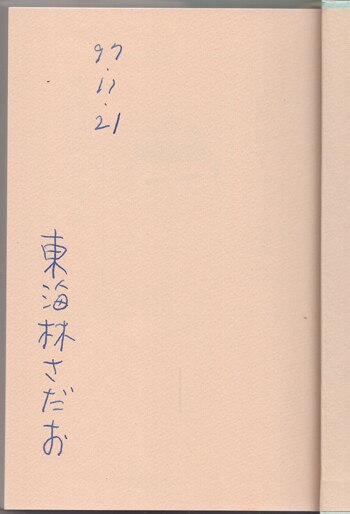 97
.
11
.
21
東海林さだお